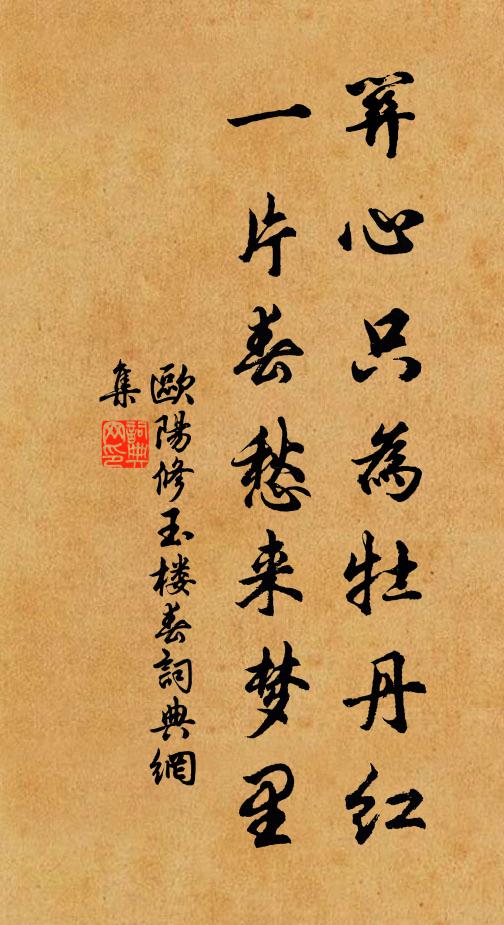 关心只為牡丹红
一片春愁来梦里
歐陽修玉楼春詞典網
集
詞典
网印